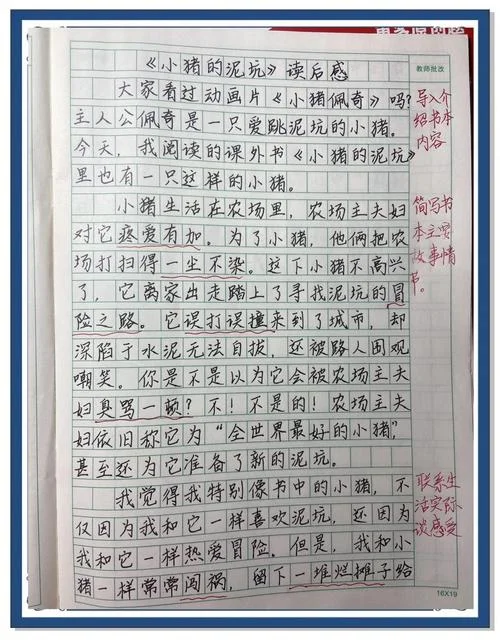 《小猪的泥坑》读后感
教师批改
大家看过动画片《小猪佩奇》吗?
主人公佩奇是一只爱跳泥坑的小猪。
今天,我阅读的课外书《小猪的泥坑》
里也有一只这样的小猪。
导入介
绍书本
内容
小猪生活在农场里,农场主夫妇
对它疼爱有加。为了小猪,他俩把农
场打扫得一尘不染。这下小猪不高兴
了,它离家出走踏上了寻找泥坑的冒
险之路。它误打误撞来到了城市,却
深陷于水泥无法自拔,还被路人围观
嘲笑。你是不是以为它会被农场主夫
妇臭骂一顿?不!不是的!农场主夫
妇依旧称它为“全世界最好的小猪”,
甚至还为它准备了新的泥坑。
简写书
本主要
故事情
节。
我觉得我特别像书中的小猪,不
仅因为我和它一样喜欢泥坑,还因为
我和它一样热爱冒险。但是,我和小
猪一样常常闯祸,留下一堆烂摊子给
联系生
活实际
谈感受
16X19